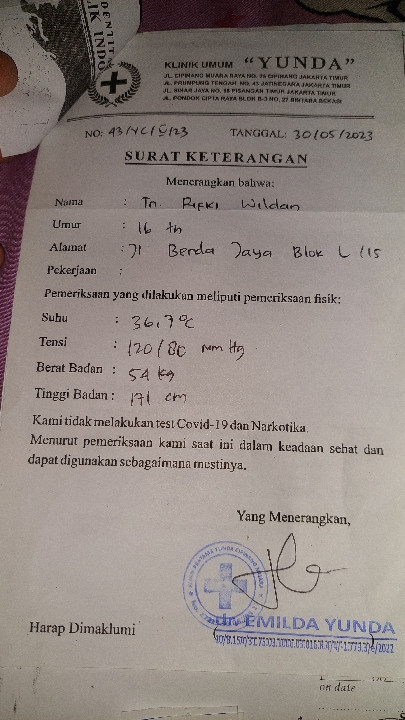 KLINIK UMUM "YUNDA"
JL. CIPINANG MUARA RAYA NO. 25 CIPINANG JAKARTA TIMUR
JL. PRUMPUNG TENGAH NO. 43 JATINEGARA JAKARTA TIMUR
JL. SINAR JAYA NO. PISANGAN TIMUR JAKARTA TIMUR
JL. PONDOK CIPTA RAYA BLOK B-3 NO. 27 BINTARA BEKASI
NO: 43/YC/V/23 TANGGAL: 30/05/2023
SURAT KETERANGAN
Menerangkan bahwa:
Nama : Tn. Rifki Wildan
Umur : 16 th
Alamat : Jl Berda Jaya Blok L/15
Pekerjaan :
Pemeriksaan yang dilakukan meliputi pemeriksaan fisik:
Suhu : 36,7°C
Tensi : 120/80 mm Hg
Berat Badan : 54 kg
Tinggi Badan : 171 cm
Kami tidak melakukan test Covid-19 dan Narkotika.
Menurut pemeriksaan kami saat ini dalam keadaan sehat dan
dapat digunakan sebagaimana mestinya.
Yang Menerangkan,
dr. EMILDA YUNDA
Harap Dimaklumi
on date